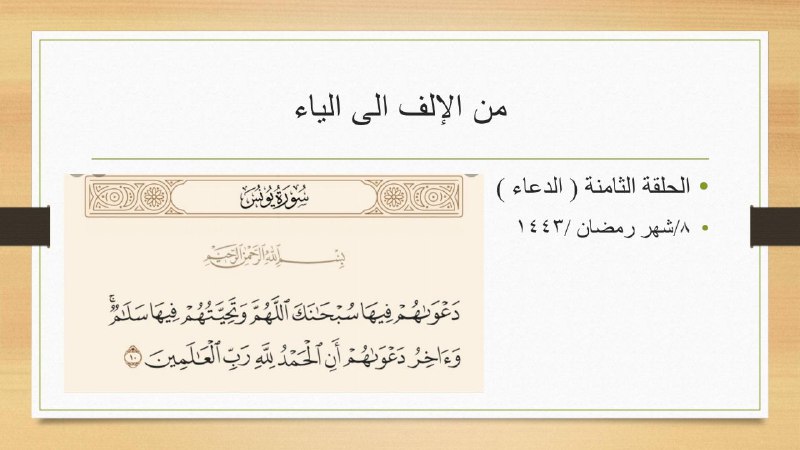 من الإلف الى الياء
الحلقة الثامنة ( الدعاء )
٨/شهر رمضان /١٤٤٣
سُورَةُ يُونُسَ
بِسْمِ اللَّهِ الرَّحْمَٰنِ الرَّحِيمِ
دَعْوَىٰهُمْ فِيهَا سُبْحَٰنَكَ اللَّهُمَّ وَتَحِيَّتُهُمْ فِيهَا سَلَٰمٌ ۚ
وَءَاخِرُ دَعْوَىٰهُمْ أَنِ الْحَمْدُ لِلَّهِ رَبِّ الْعَٰلَمِينَ ١٠